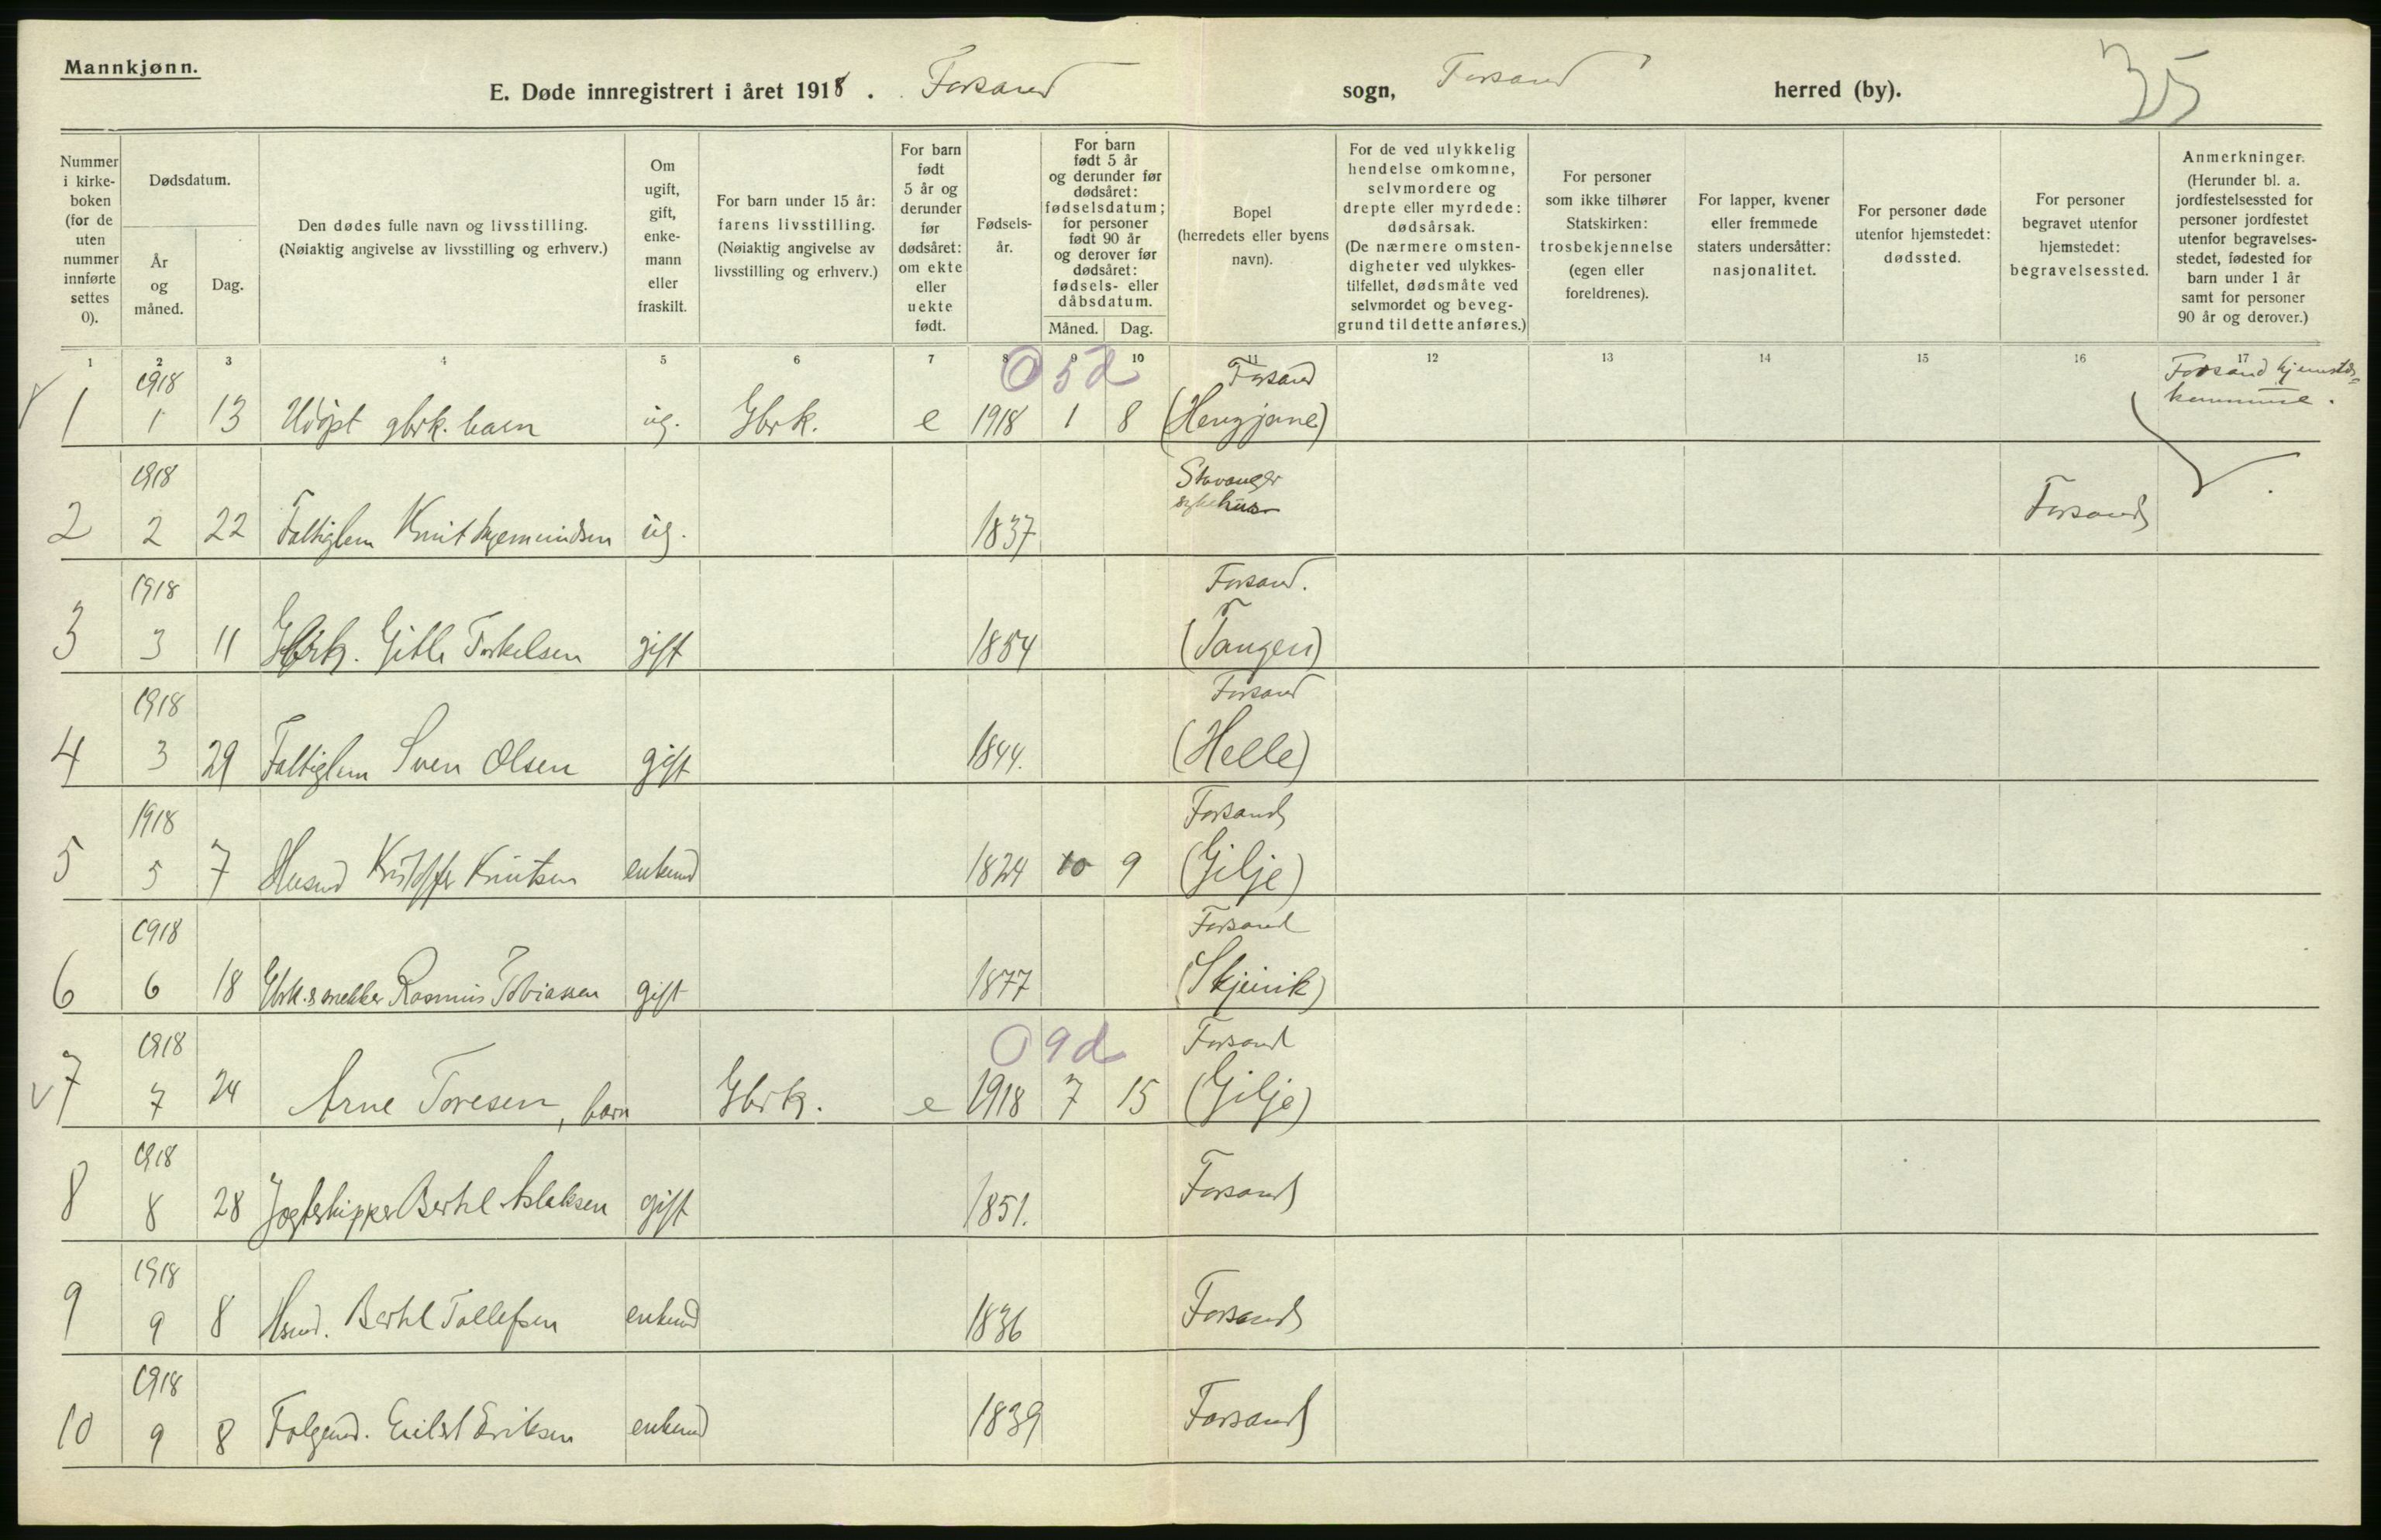 Mannkjønn.
E. Døde innregistrert i året 1918. Forsand sogn, Forsand herred (by).
35
Nummer i kirke-boken (for de uten nummer innførte settes 0).
Dødsdatum.
År og måned.
Dag.
Den dødes fulle navn og livsstilling. (Nøiaktig angivelse av livsstilling og erhverv.)
Om ugift, gift, enke-mann eller fraskilt.
For barn under 15 år: farens livsstilling. (Nøiaktig angivelse av livsstilling og erhverv.)
For barn født 5 år og derunder før dødsåret: om ekte eller uekte født.
Fødsels-år.
For barn født 5 år og derunder før dødsåret: fødselsdatum; for personer født 90 år og derover før dødsåret: fødsels- eller dåbsdatum.
Måned. Dag.
Bopel (herredets eller byens navn).
For de ved ulykkelig hendelse omkomne, selvmordere og drepte eller myrdede: dødsårsak. (De nærmere omsten-digheter ved ulykkes-tilfellet, dødsmåte ved selvmordet og beveg-grund til dette anføres.)
For personer som ikke tilhører Statskirken: trosbekjennelse (egen eller foreldrenes).
For lapper, kvener eller fremmede staters undersåtter: nasjonalitet.
For personer døde utenfor hjemstedet: dødssted.
For personer begravet utenfor hjemstedet: begravelsessted.
Anmerkninger. (Herunder bl. a. jordfestelsessted for personer jordfestet utenfor begravelses-stedet, fødested for barn under 1 år samt for personer 90 år og derover.)
1 2 3 4 5 6 7 8 9 10 11 12 13 14 15 16 17
0 5 d
1 1918 1 13 Udøpt gbrk. barn ug. Gbrk. e 1918 1 8 Forsand (Hengjane) Forsand hjemsteds-kommune.
2 1918 2 22 Fattiglem Knut ug. 1837 Stavanger sykehus Forsand
3 1918 3 11 Gbrk. Gitle Torkelsen gift 1854 Forsand. (Tangen)
4 1918 3 29 Fattiglem Sven Olsen gift 1844. Forsand (Helle)
5 1918 5 7 Husmd Kristoffer Knutsen enkemd 1824 10 9 Forsand (Gilje)
6 1918 6 18 Gbrk. snekker Rasmus Tobiassen gift 1877 Forsand (Skjeivik)
0 9 d
7 1918 7 24 Arne Toresen, barn Gbrk. e 1918 7 15 Forsand (Gilje)
8 1918 8 28 Jagteskipper Bertil Aslaksen gift 1851. Forsand
9 1918 9 8 Hsmd. Bertil Tollefsen enkemd 1836 Forsand
10 1918 9 8 Folgemd. Eilert Eriksen enkemd 1839 Forsand